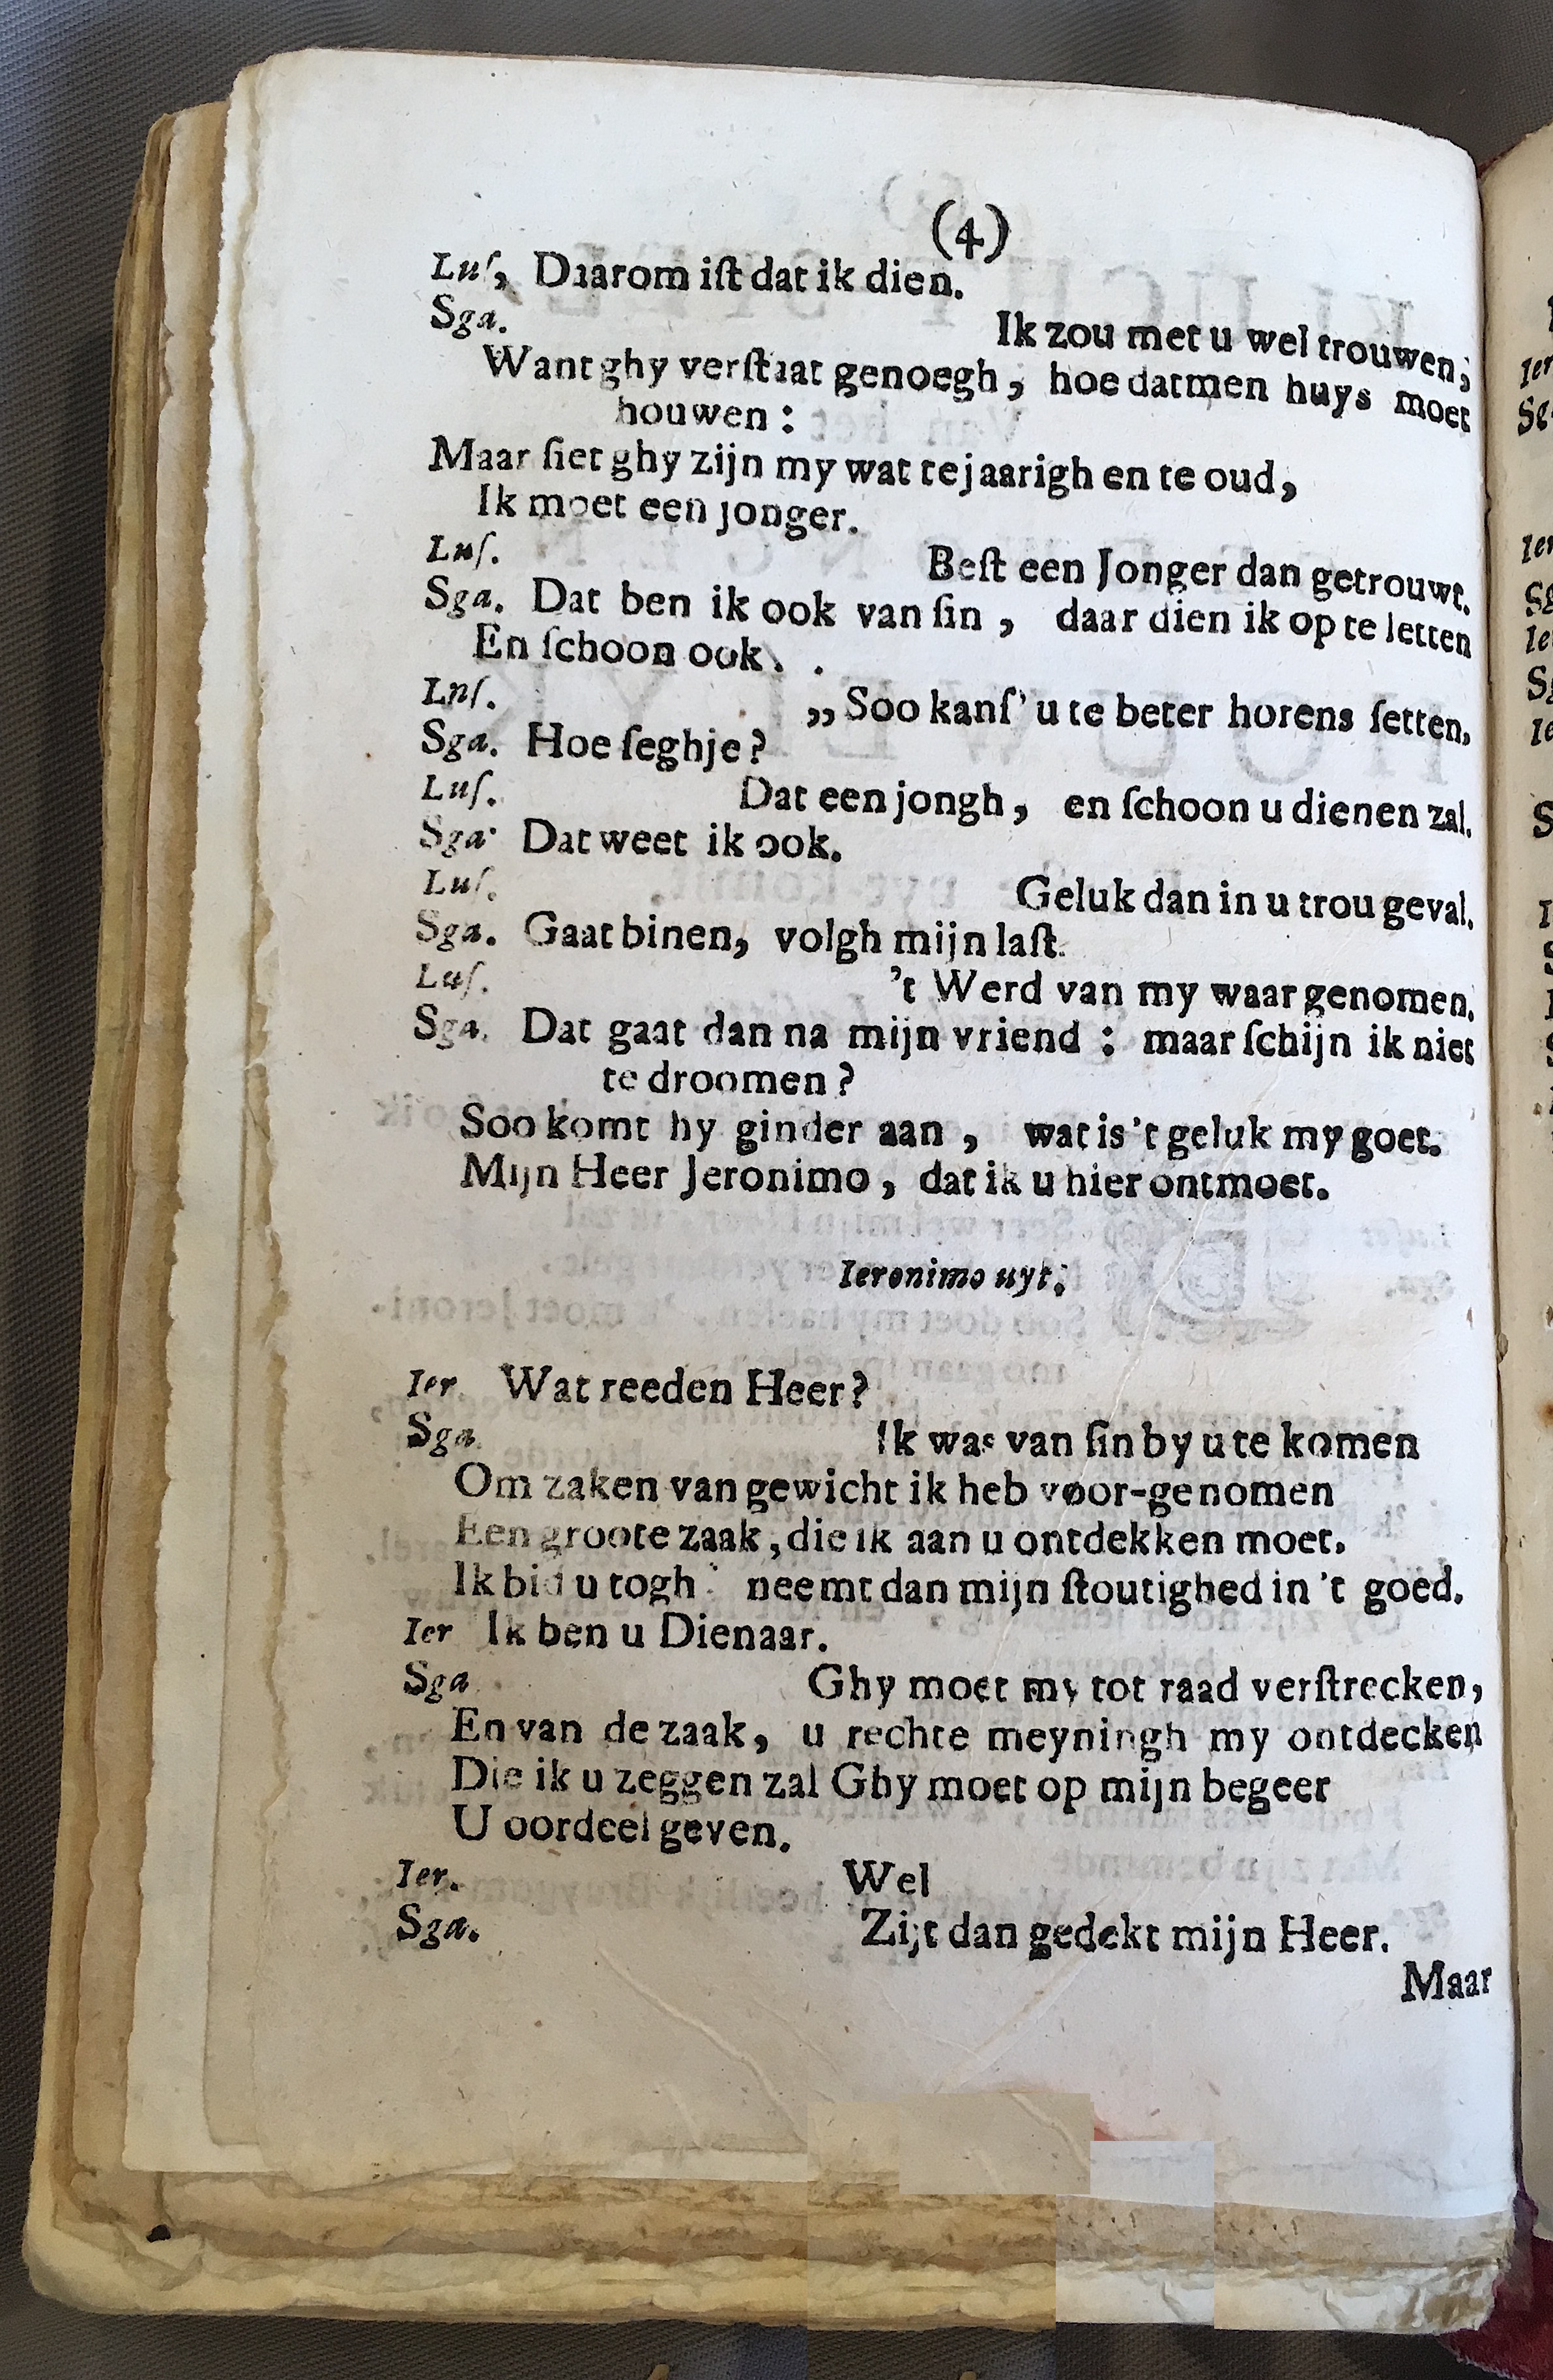 (4)
Luſ, Daarom iſt dat ik dien.
Sga. Ik zou met u wel trouwen;
Want ghy verſtaat genoegh, hoe datmen huys moet
houwen:
Maar ſiet ghy zijn my wat te jaarigh en te oud,
Ik moet een jonger.
Luſ. Beſt een Jonger dan getrouwt.
Sga. Dat ben ik ook van ſin, daar dien ik op te letten
En ſchoon ook.
Lnſ. „Soo kanſ' u te beter horens ſetten.
Sga. Hoe ſeghje?
Luſ. Dat een jongh, en ſchoon u dienen zal.
Sga. Dat weet ik ook.
Luſ. Geluk dan in u trou geval.
Sga. Gaat binen, volgh mijn laſt.
Luſ. 't Werd van my waar genomen.
Sga. Dat gaat dan na mijn vriend: maar ſchijn ik niet
te droomen?
Soo komt hy ginder aan, wat is 't geluk my goet.
Mijn Heer Jeronimo, dat ik u hier ontmoet.
Ieronimo uyt.
Ier. Wat reeden Heer?
Sga. Ik was van ſin by u te komen
Om zaken van gewicht ik heb voor-genomen
Een groote zaak, die ik aan u ontdekken moet.
Ik bid u togh neemt dan mijn ſtoutighed in 't goed.
Ier Ik ben u Dienaar.
Sga Ghy moet my tot raad verſtrecken,
En van de zaak, u rechte meyningh my ontdecken
Die ik u zeggen zal Ghy moet op mijn begeer
U oordeel geven.
Ier. Wel
Sga. Zijt dan gedekt mijn Heer.
Maar